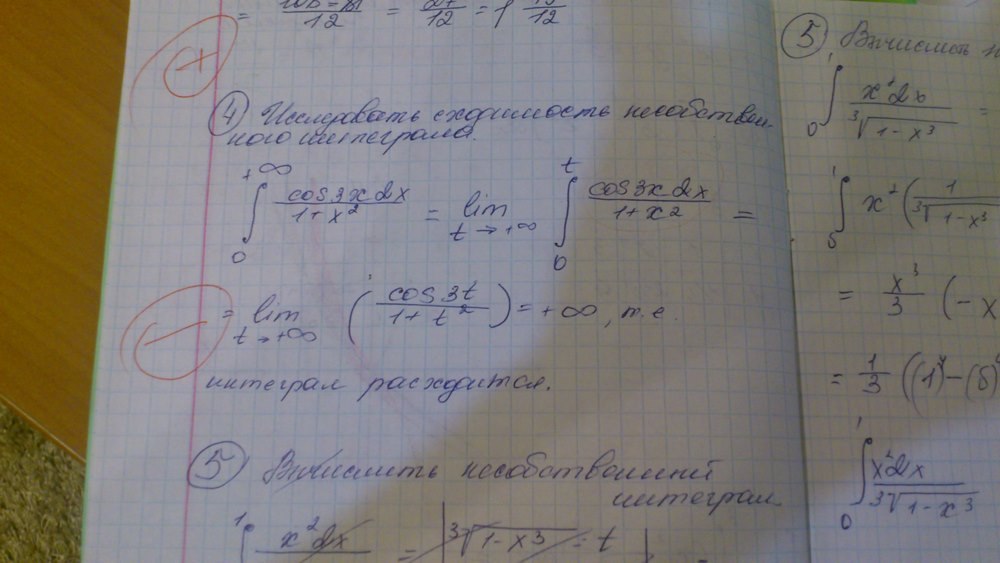 = 12 = 12 = 1 12
+
④ Исследовать сходимость несобствен-
ного интеграла.
∫₀^{+∞} cos3x dx / 1+x² = lim t→+∞ ∫₀^t cos3x dx / 1+x² =
= lim t→+∞ (cos3t / 1+t²) = +∞, т.е.
−
интеграл расходится.
⑤ Вычислить несобственный
интеграл
∫ 1 x²dx = | ∛1-x³ = t |
⑤ Вычислить н
∫₀¹ x²dx / ∛1-x³ =
∫₀¹ x² (1 / ∛1-x³
= x³/3 (-x
= 1/3 ((1)
∫₀¹ x²dx / ∛1-x³